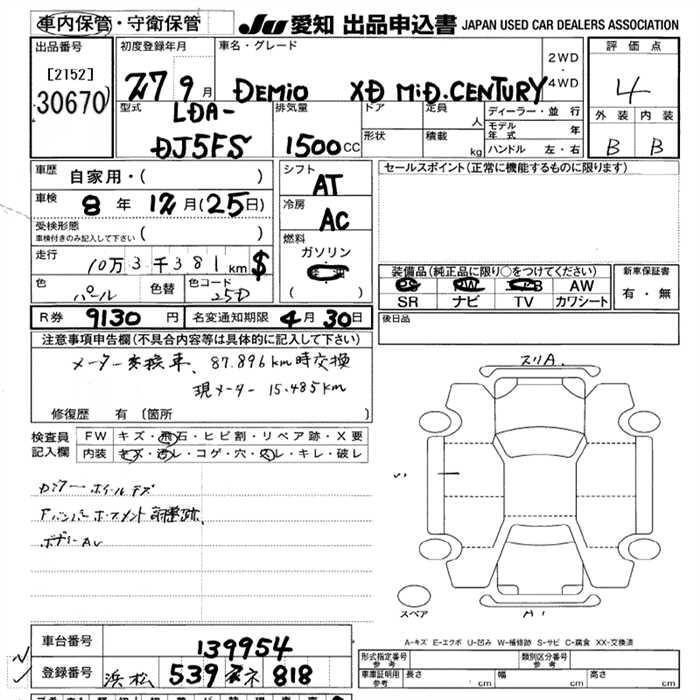 車内保管・守衛保管
JU 愛知 出品申込書 JAPAN USED CAR DEALERS ASSOCIATION
出品番号
[2152]
30670
初度登録年月
27 9 月
車名・グレード
DEMIO XD MiD.CENTURY
2WD
・
4WD
評価点
4
外装 内装
B B
型式
LDA-
DJ5FS
排気量
1500 CC
ドア 定員 人
形状 積載 kg
ディーラー・並行
モデル年式 年
ハンドル 左・右
車歴 自家用・( )
車検 8 年 12 月 (25日)
受検形態
車検付きのみ記入して下さい ( )
走行 10万 3 千 381 km $
色 パール 色替 色コード 25D
シフト
AT
冷房
AC
燃料
ガソリン
( )
セールスポイント(正常に機能するものに限ります)
装備品(純正品に限り○をつけてください)
PS PW AW
SR ナビ TV カワシート
新車保証書
有・無
R券 9130 円 名変通知期限 4月30日
後日品
注意事項申告欄(不具合内容等は具体的に記入して下さい)
メーター交換車、87.896km時交換
現メーター 15.485km
修復歴 有 〔箇所 〕
検査員 FW キズ・飛石・ヒビ割・リペア跡・X要
記入欄 内装 キズ・汚レ・コゲ・穴・スレ・キレ・破レ
スリA.
スペア
A1
A-キズ E-エクボ U-凹み W-補修跡 S-サビ C-腐食 XX-交換済
車台番号 139954
登録番号 浜松 539 ネ 818
形式指定番号
参考
類別区分番号
参考
車庫証明用
参考
長さ cm 幅 cm 高さ cm